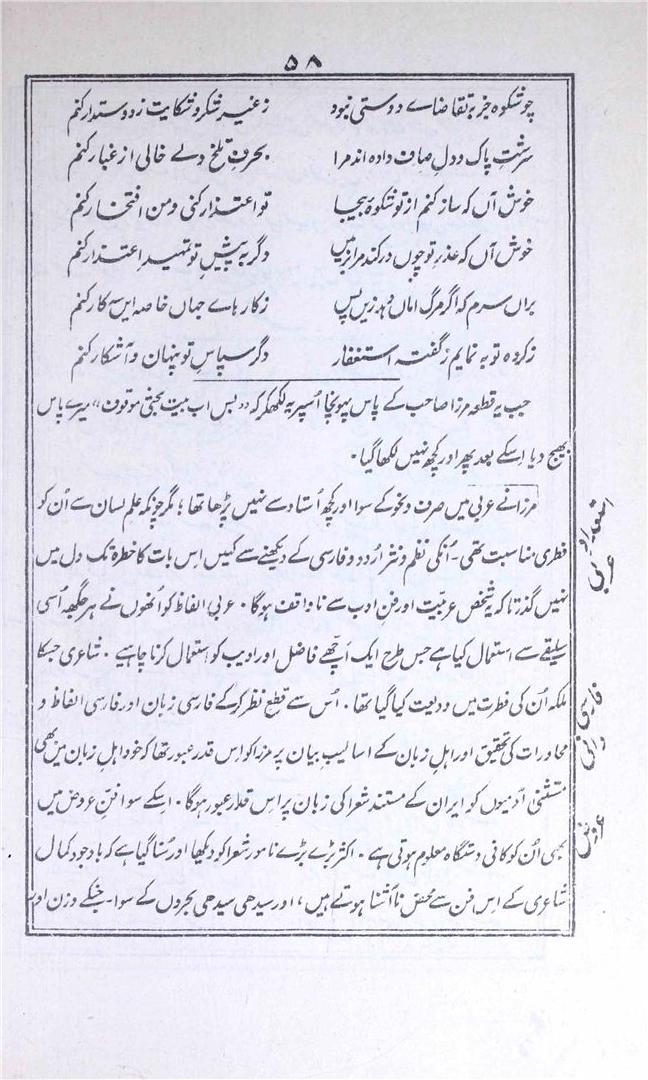 ۵۸
چو شکوہ جز بہ تقاضاے دوستی نبود زغیر شکر و شکایت ز دوستدار کنم
سرشتِ پاک و دلِ صاف دادہ اند مرا بحرفِ تلخ دلے خالی از غبار کنم
خوش آں کہ ساز کنم از تو شکوۂ بیجا تو اعتذار کنی و من افتخار کنم
خوش آں کہ عذرِ تو چوں در کند مرا زیں دگر بہ پیشِ تو تمہیدِ اعتذار کنم
براں سرم کہ اگر مرگ اماں دہد زیں پس ز کارہاے جہاں خاصہ ایں سہ کار کنم
ز کردہ توبہ نمایم ز گفتہ استغفار دگر سپاسِ تو پنہان و آشکار کنم
جب یہ قطعہ مرزا صاحب کے پاس پہونچا اُسپر یہ لکھکر کہ "بس اب بیت بحثی موقوف" میرے پاس
بھیج دیا اِسکے بعد پھر اور کچھ نہیں لکھا گیا۔
مرزا نے عربی میں صرف و نحو کے سوا اور کچھ اُستاد سے نہیں پڑھا تھا؛ مگر چونکہ علمِ لسان سے اُن کو
فطری مناسبت تھی۔ اُنکی نظم و نثر اُردو و فارسی کے دیکھنے سے کہیں اِس بات کا خطرہ تک دل میں
نہیں گذرتا کہ یہ شخص عربیّت اور فنِ ادب سے ناواقف ہوگا۔ عربی الفاظ کو اُنھوں نے ہر جگہ اُسی
سلیقے سے استعمال کیا ہے جس طرح ایک اچھے فاضل اور ادیب کو استعمال کرنا چاہیے۔ شاعری جسکا
ملکہ اُن کی فطرت میں ودیعت کیا گیا تھا۔ اُس سے قطعِ نظر کرکے فارسی زبان اور فارسی الفاظ و
محاورات کی تحقیق اور اہلِ زبان کے اسالیبِ بیان پر مرزا کو اِس قدر عبور تھا کہ خود اہلِ زبان میں بھی
مستثنیٰ آدمیوں کو ایران کے مستند شعرا کی زبان پر اِس قدر عبور ہوگا۔ اِسکے سوا فنِّ عروض میں
بھی اُن کو کافی دستگاہ معلوم ہوتی ہے۔ اکثر بڑے بڑے نامور شعرا کو دیکھا اور سُنا گیا ہے کہ باوجود کمال
شاعری کے اِس فن سے محض ناآشنا ہوتے ہیں، اور سیدھی سیدھی بحروں کے سوا۔ جنکے وزن اور
استعداد عربی
فارسی
عروض